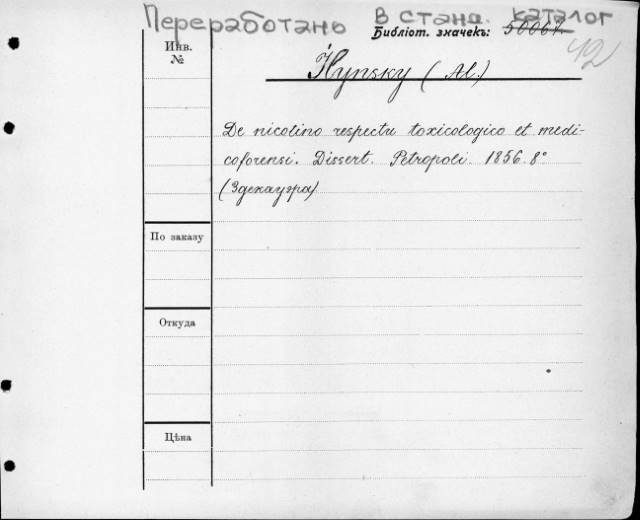 Переработань в стана. каталог
Библіот. значекъ:
42
Инв.
№
(Al.)
De nicotino respectu toxicologico et medi-
coforensi. Dissert. Petropoli. 1856. 8°
(Здекауэра)
По заказу
Откуда
Цѣна